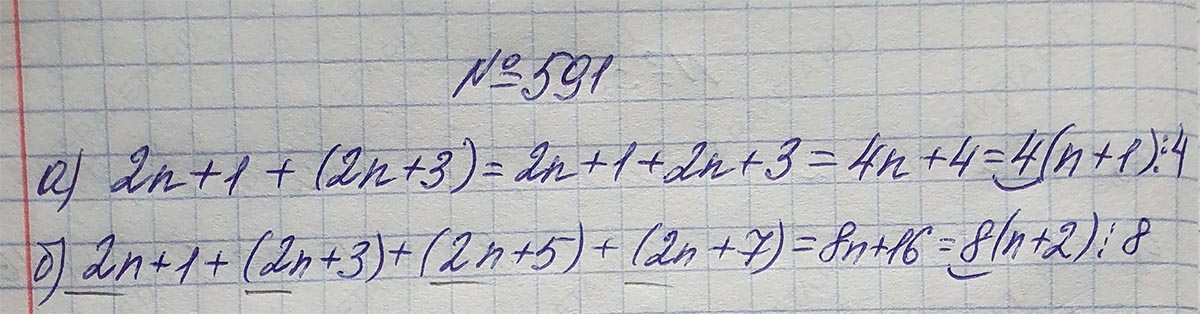 №591
а) 2n+1+(2n+3)=2n+1+2n+3=4n+4=4(n+1)⋮4
б) 2n+1+(2n+3)+(2n+5)+(2n+7)=8n+16=8(n+2)⋮8